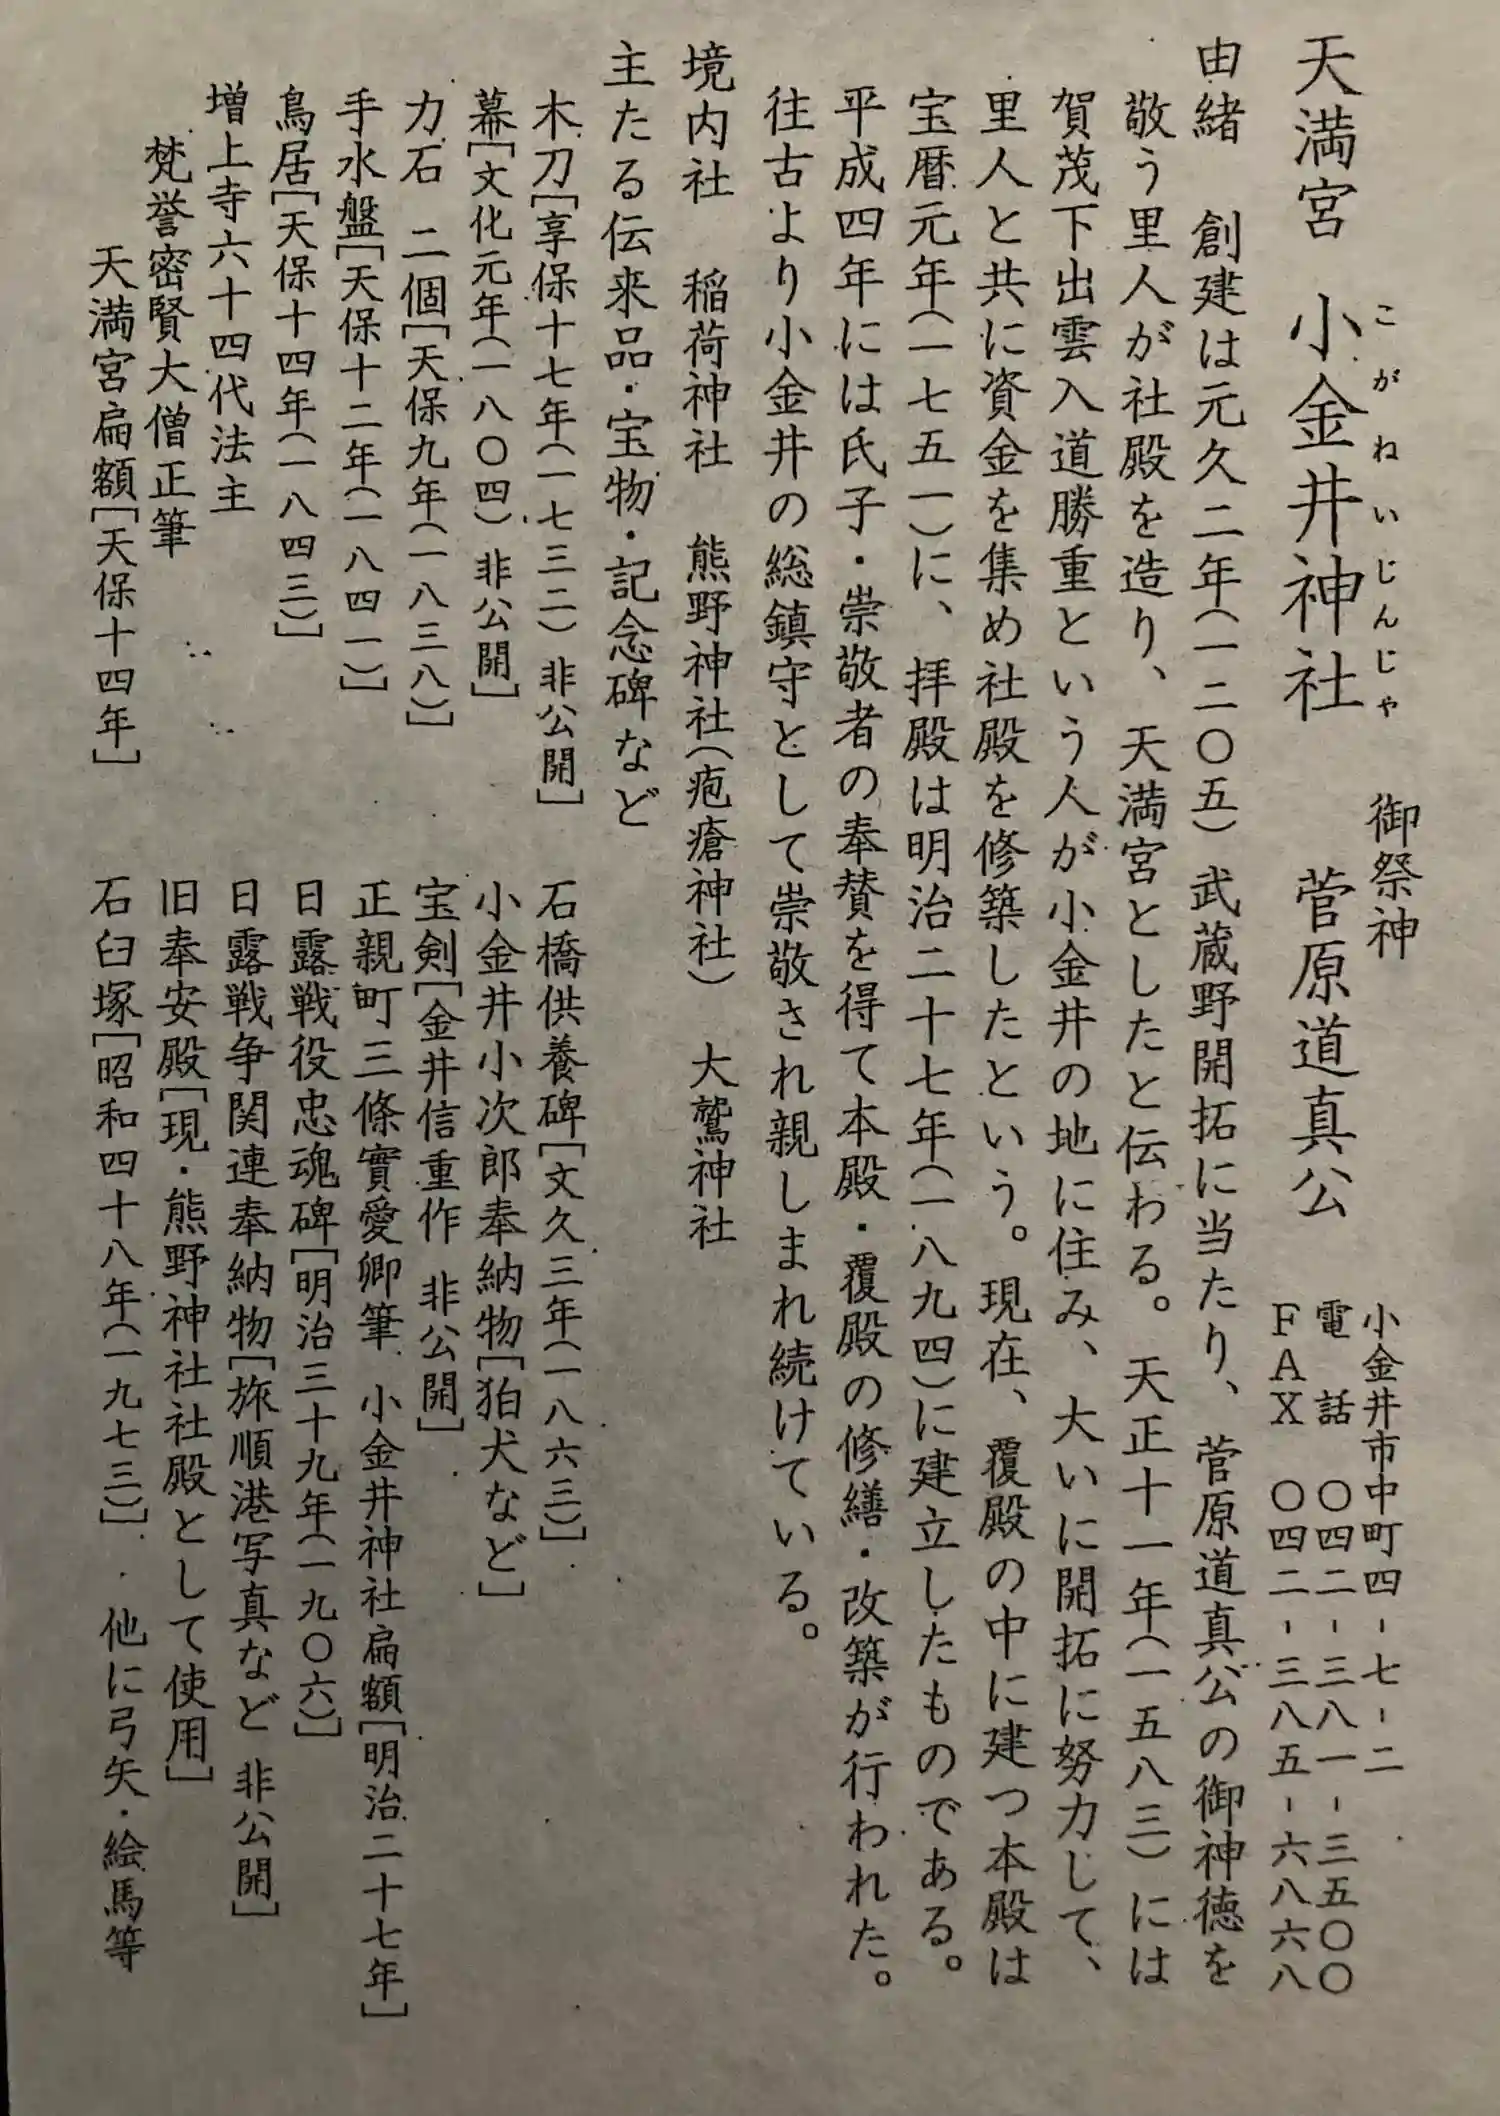 天満宮 小金井神社
こがねいじんじゃ
御祭神
菅原道真公
小金井市中町四-七-二
電話 〇四二-三八一-三五〇〇
FAX 〇四二-三八五-六八六八
由緒 創建は元久二年(一二〇五)武蔵野開拓に当たり、菅原道真公の御神徳を
敬う里人が社殿を造り、天満宮としたと伝わる。天正十一年(一五八三)には
賀茂下出雲入道勝重という人が小金井の地に住み、大いに開拓に努力して、
里人と共に資金を集め社殿を修築したという。現在、覆殿の中に建つ本殿は
宝暦元年(一七五一)に、拝殿は明治二十七年(一八九四)に建立したものである。
平成四年には氏子・崇敬者の奉賛を得て本殿・覆殿の修繕・改築が行われた。
往古より小金井の総鎮守として崇敬され親しまれ続けている。
境内社 稲荷神社 熊野神社(疱瘡神社) 大鷲神社
主たる伝来品・宝物・記念碑など
木刀[享保十七年(一七三二)非公開]
幕[文化元年(一八〇四)非公開]
力石 二個[天保九年(一八三八)]
手水盤[天保十二年(一八四一)]
鳥居[天保十四年(一八四三)]
増上寺六十四代法主
梵誉密賢大僧正筆
天満宮扁額[天保十四年]
石橋供養碑[文久三年(一八六三)]
小金井小次郎奉納物[狛犬など]
宝剣[金井信重作 非公開]
正親町三條實愛卿筆 小金井神社扁額[明治二十七年]
日露戦役忠魂碑[明治三十九年(一九〇六)]
日露戦争関連奉納物[旅順港写真など 非公開]
旧奉安殿[現・熊野神社社殿として使用]
石臼塚[昭和四十八年(一九七三)] 他に弓矢・絵馬等